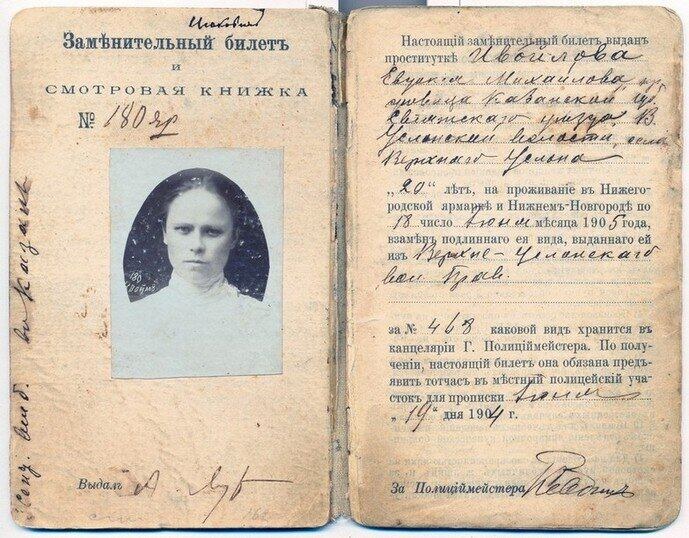 Замѣнительный билетъ
и
СМОТРОВАЯ КНИЖКА
№ 180 яр
Выдалъ
Настоящій замѣнительный билетъ выданъ
проституткѣ Ивойлова
Евдокія Михайлова, кр
Казанской губ.
Свіяжского уезда, В.
Услонской волости, села
Верхняго Услона
„20“ лѣтъ, на проживаніе въ Нижего-
родской ярмаркѣ и Нижнемъ-Новгородѣ по
18 число Іюня мѣсяца 1905 года,
взамѣнъ подлиннаго ея вида, выданнаго ей
изъ Верхне-Услонскаго
вол. Прав.
за № 468 каковой видъ хранится въ
канцеляріи Г. Полиціймейстера. По полу-
ченіи, настоящій билетъ она обязана предъ-
явить тотчасъ въ мѣстный полицейскій уча-
стокъ для прописки Іюня
„19“ дня 1904 г.
За Полиціймейстера